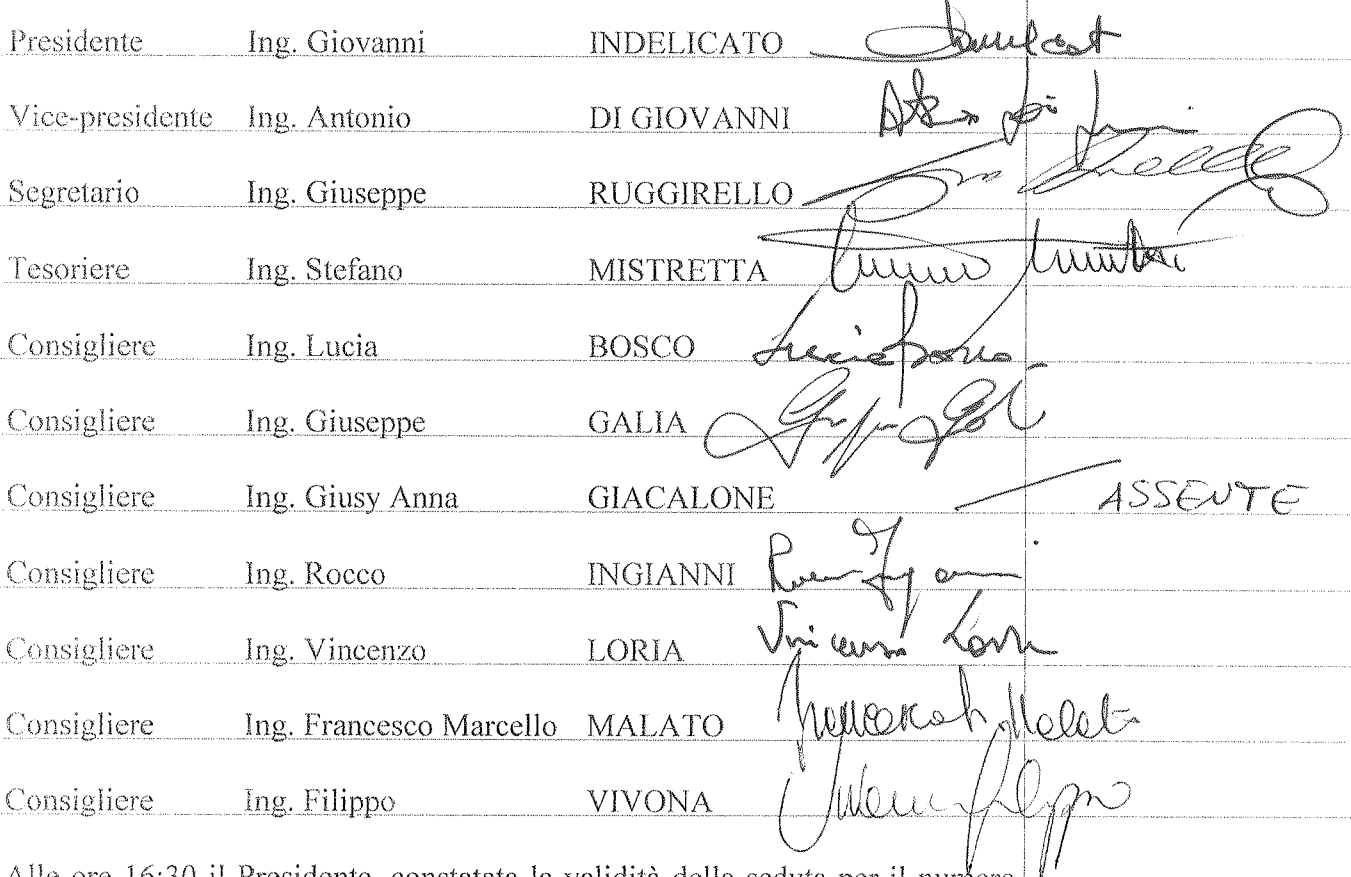 Presidente Ing. Giovanni INDELICATO
Vice-presidente Ing. Antonio DI GIOVANNI
Segretario Ing. Giuseppe RUGGIRELLO
Tesoriere Ing. Stefano MISTRETTA
Consigliere Ing. Lucia BOSCO Lucia Bosco
Consigliere Ing. Giuseppe GALIA
Consigliere Ing. Giusy Anna GIACALONE ASSENTE
Consigliere Ing. Rocco INGIANNI
Consigliere Ing. Vincenzo LORIA Vincenzo Loria
Consigliere Ing. Francesco Marcello MALATO
Consigliere Ing. Filippo VIVONA
Alle ore 16:30 il Presidente, constatata la validità della seduta per il numero